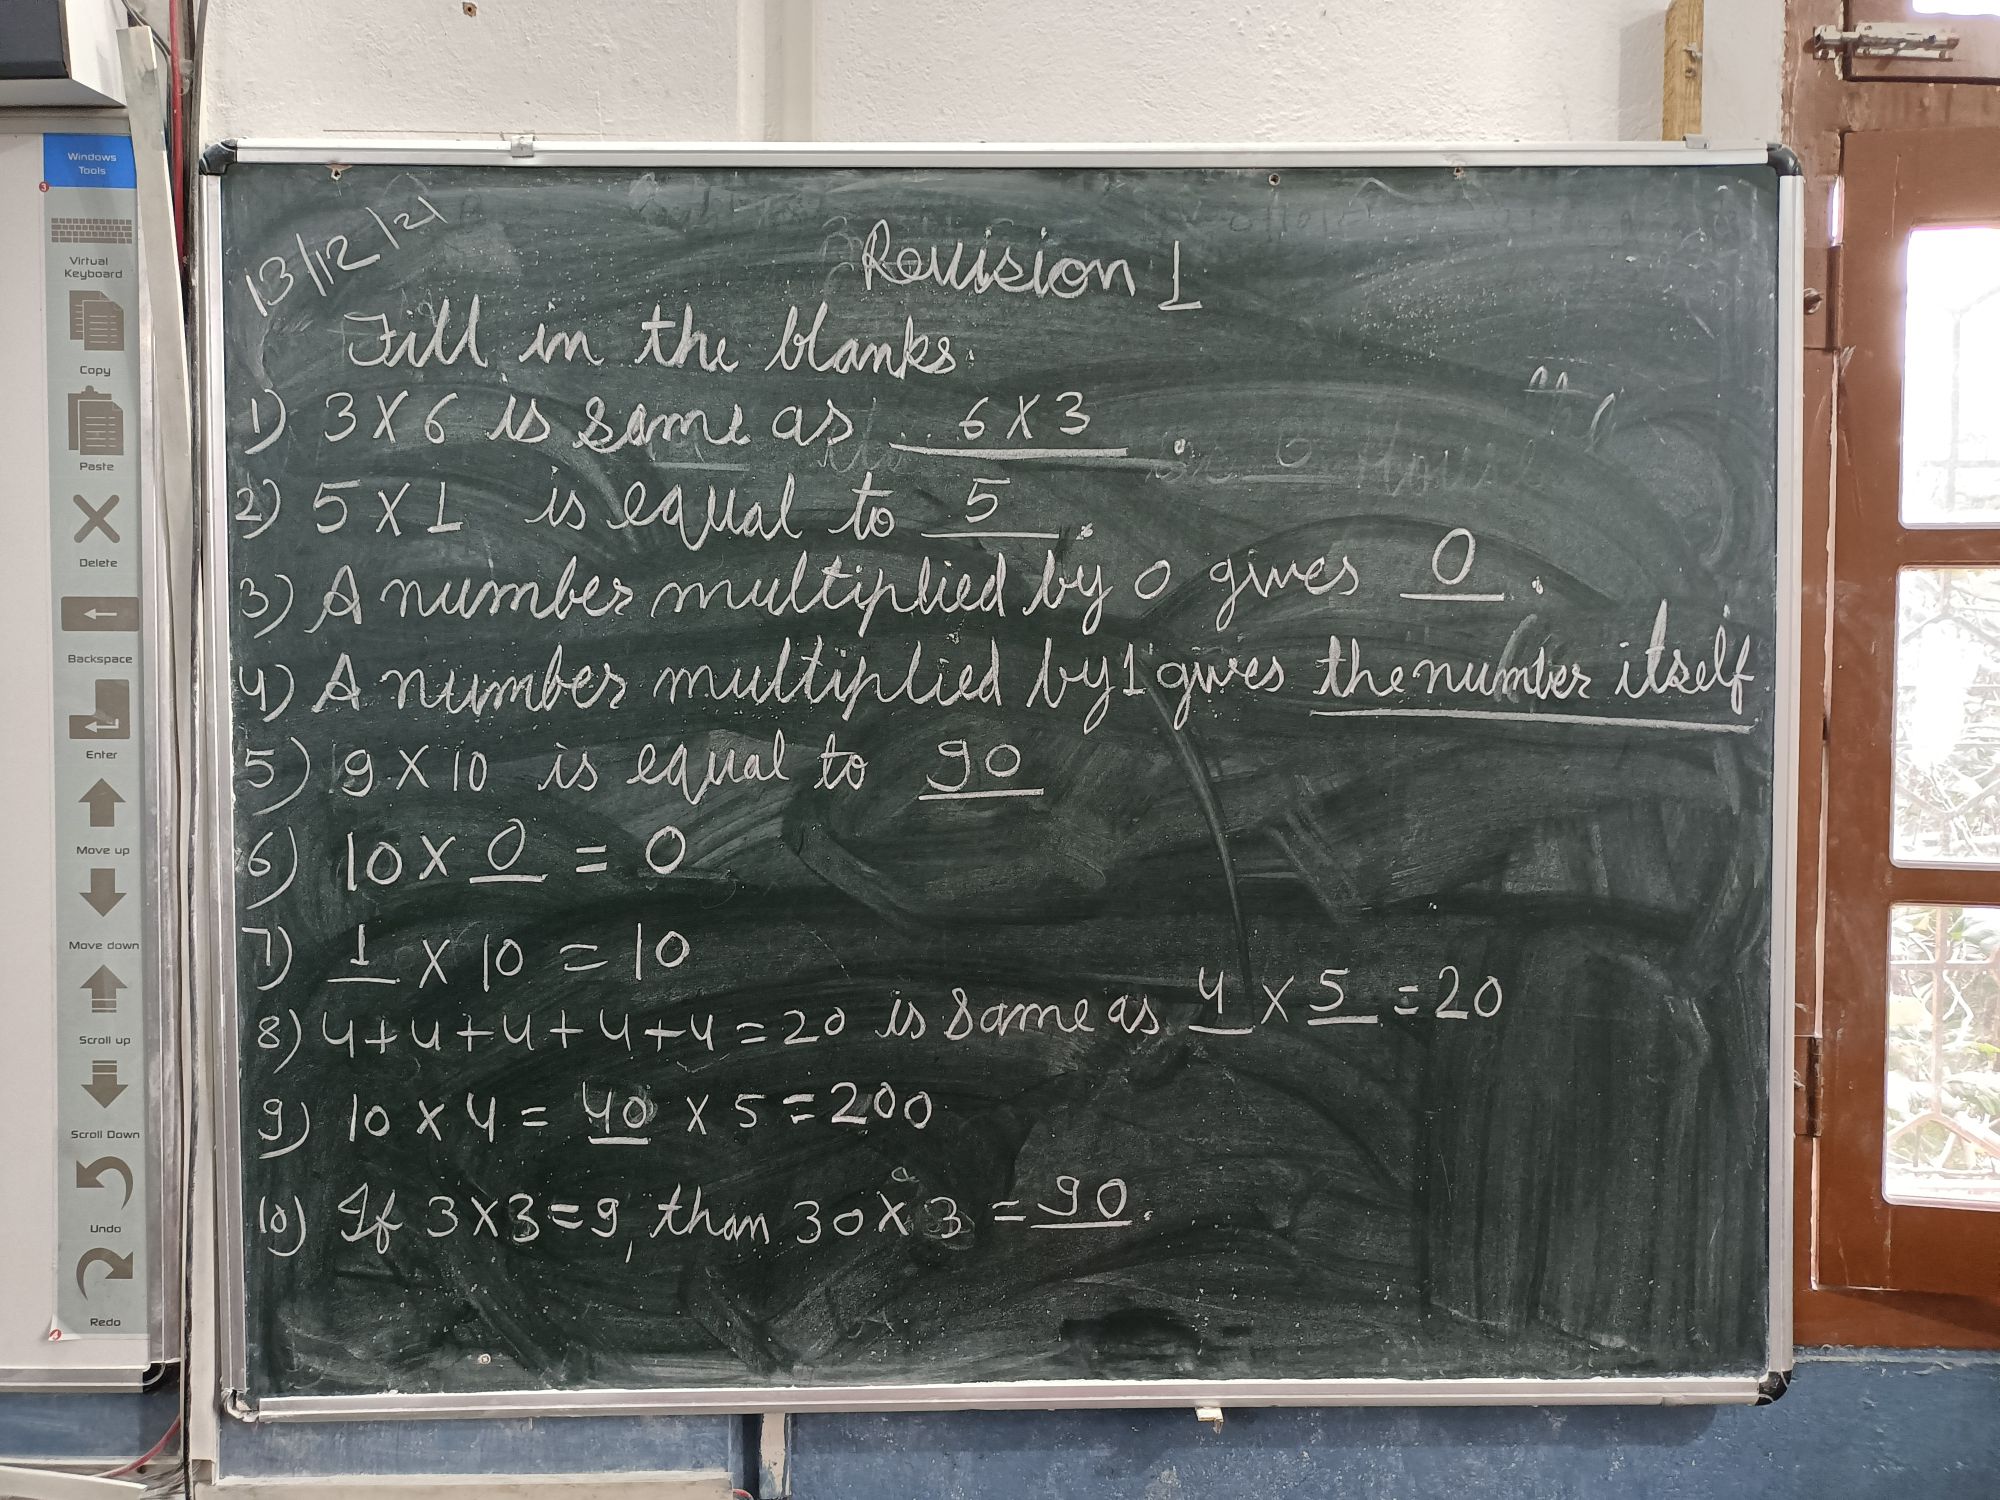 Windows
Tools
Virtual
Keyboard
Copy
Paste
Delete
Backspace
Enter
Move up
Move down
Scroll up
Scroll Down
Undo
Redo
13/12/21
Revision 1
Fill in the blanks.
1) 3 X 6 is same as 6 X 3.
2) 5 X 1 is equal to 5.
3) A number multiplied by 0 gives 0.
4) A number multiplied by 1 gives the number itself.
5) 9 X 10 is equal to 90
6) 10 X 0 = 0
7) 1 X 10 = 10
8) 4+4+4+4+4=20 is same as 4 X 5 = 20
9) 10 X 4 = 40 X 5 = 200
10) If 3X3=9, than 30X3 = 90.